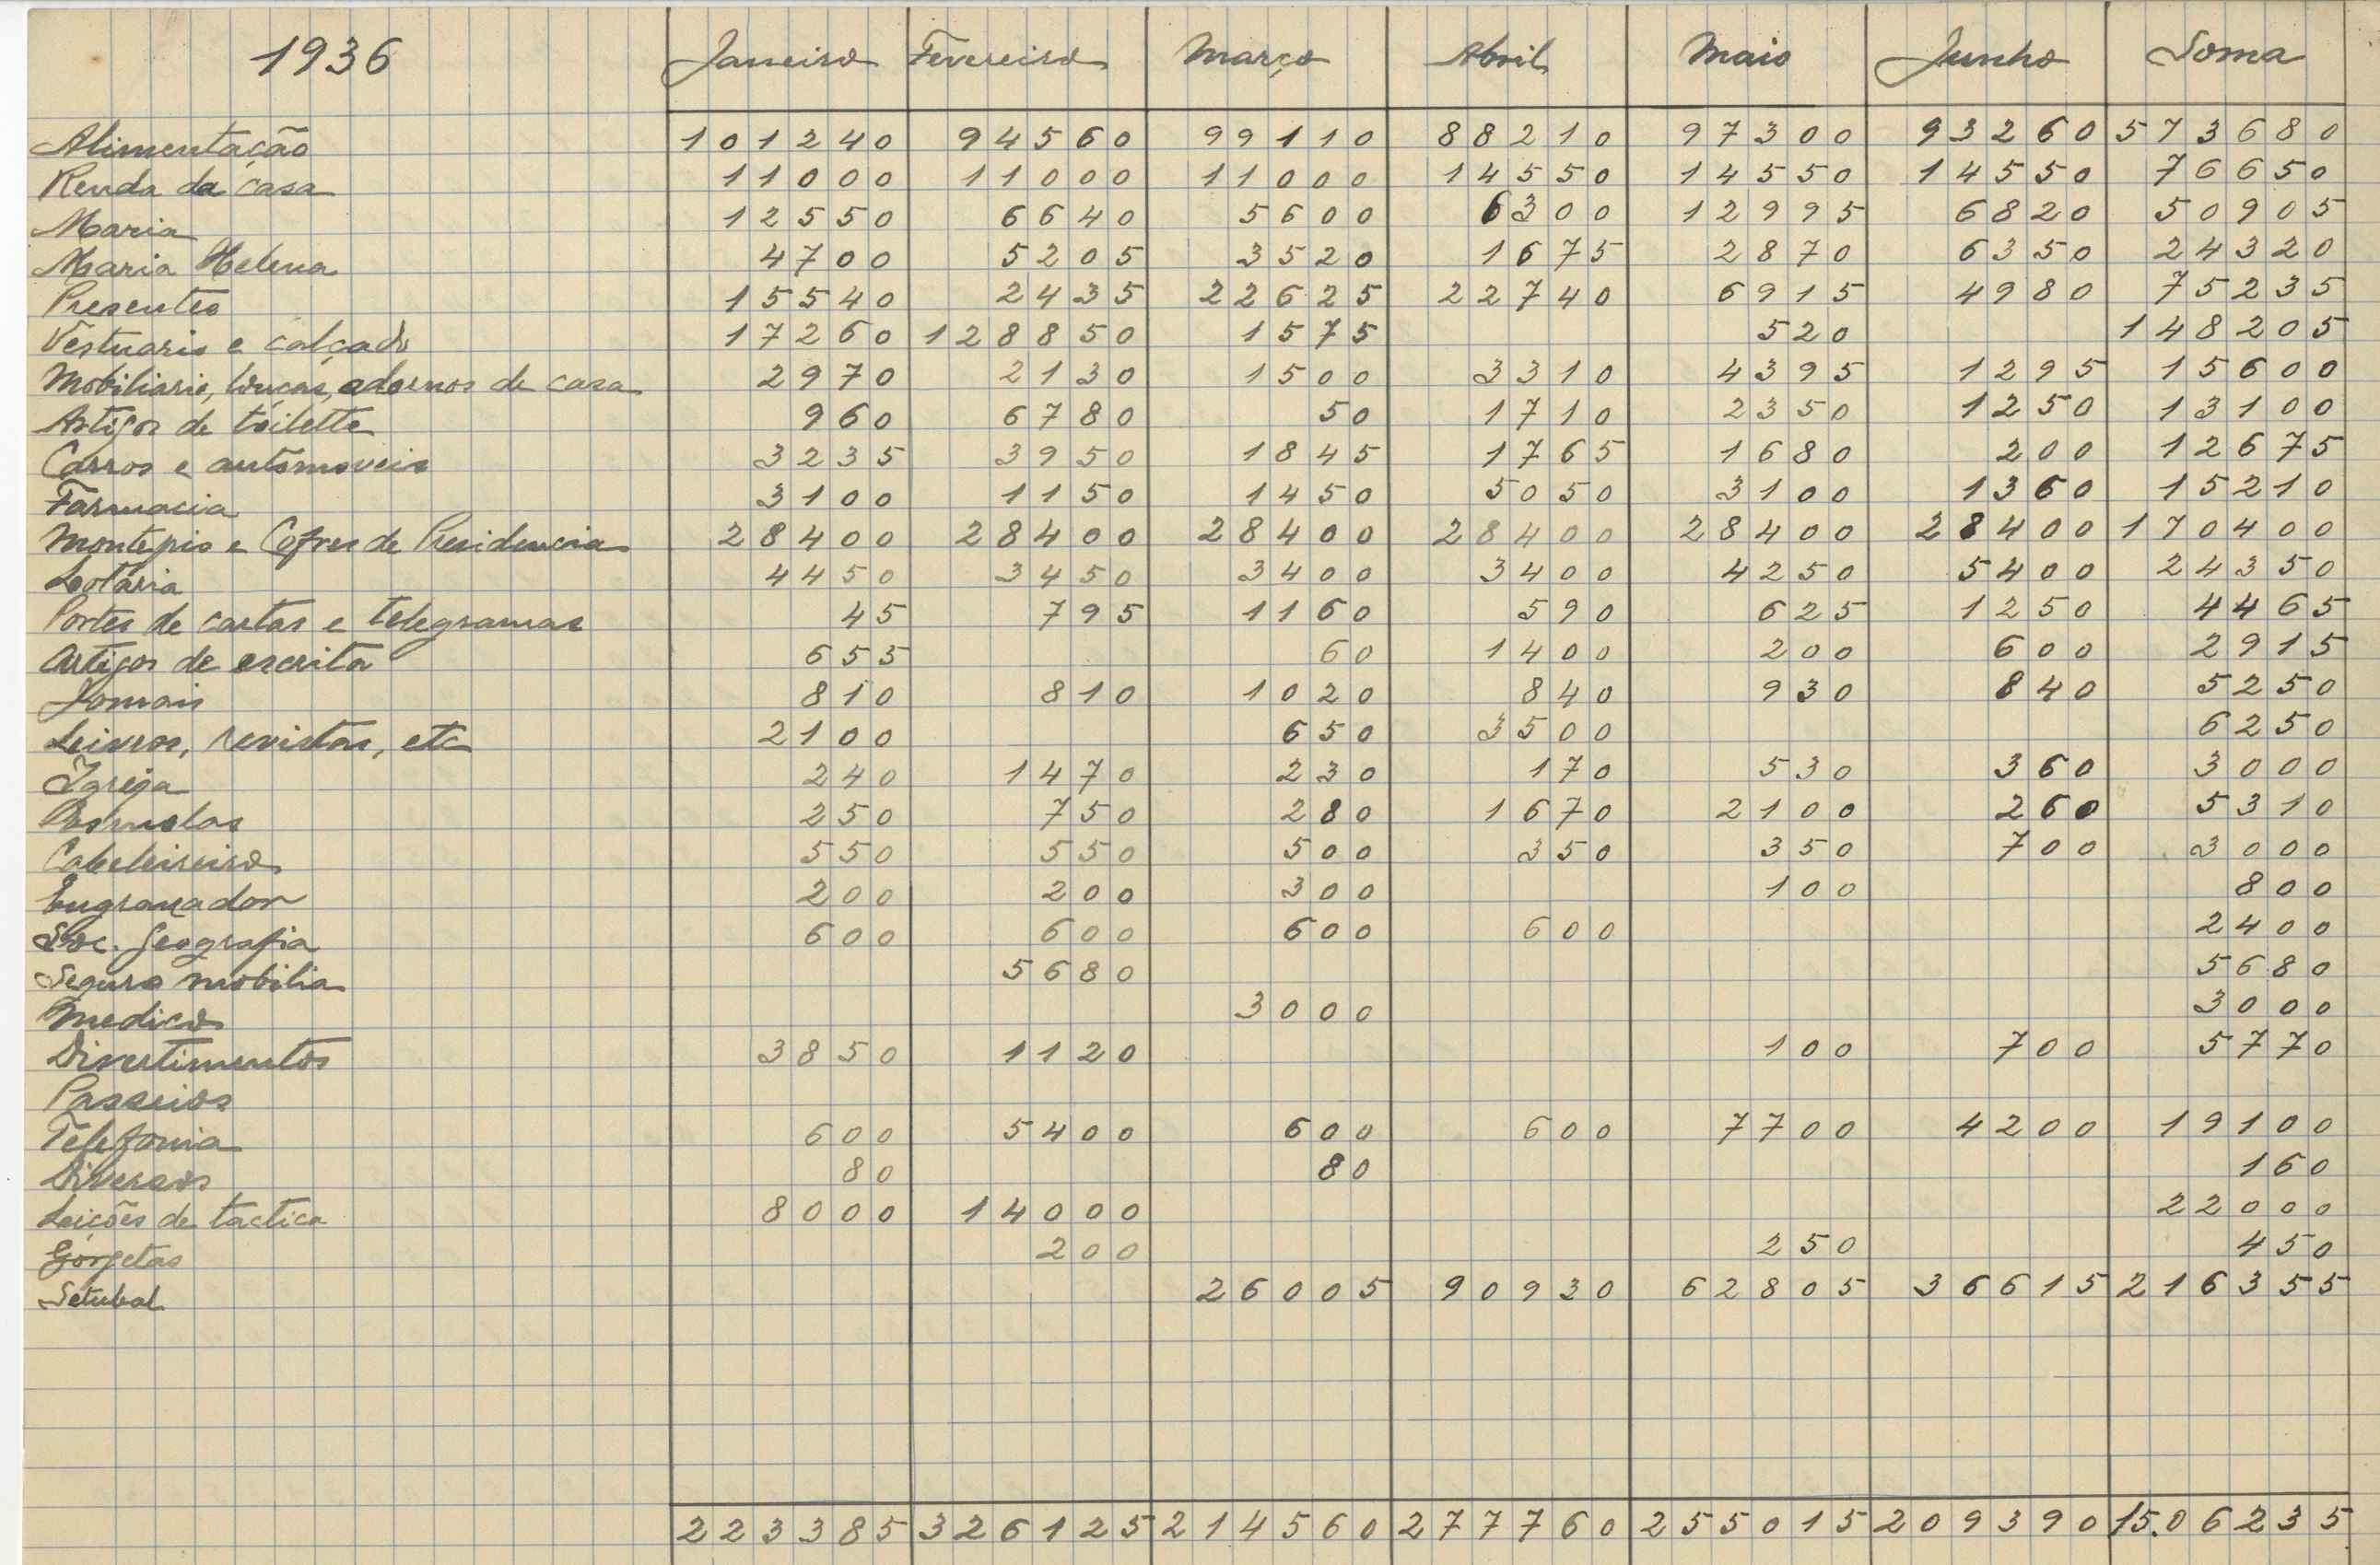 1936 Janeiro Fevereiro Março Abril Maio Junho Soma
Alimentação 101240 94560 99110 88210 97300 93260 573680
Renda da casa 11000 11000 11000 14550 14550 14550 76650
Maria 12550 6640 5600 6300 12995 6820 50905
Maria Helena 4700 5205 3520 1675 2870 6350 24320
Presentes 15540 2435 22625 22740 6915 4980 75235
Vestuario e calçado 17260 128850 1575 520 148205
Mobiliario, louças, adornos de casa 2970 2130 1500 3310 4395 1295 15600
Artigos de toilette 960 6780 50 1710 2350 1250 13100
Carros e automoveis 3235 3950 1845 1765 1680 200 12675
Farmacia 3100 1150 1450 5050 3100 1360 15210
Montepio e Cofres de Previdencia 28400 28400 28400 28400 28400 28400 170400
Lotaria 4450 3450 3400 3400 4250 5400 24350
Portes de cartas e telegramas 45 795 1160 590 625 1250 4465
Artigos de escrita 655 60 1400 200 600 2915
Jornais 810 810 1020 840 930 840 5250
Leivros, revistas, etc 2100 650 3500 6250
Igreja 240 1470 230 170 530 360 3000
Esmolas 250 750 280 1670 2100 260 5310
Cabeleireiro 550 550 500 350 350 700 3000
Engraxador 200 200 300 100 800
Soc. Geografia 600 600 600 600 2400
Seguro mobilia 5680 5680
Medico 3000 3000
Divertimentos 3850 1120 100 700 5770
Passeios
Telefonia 600 5400 600 600 7700 4200 19100
Diversos 80 80 160
Leições de tactica 8000 14000 22000
Gorjetas 200 250 450
Setubal 26005 90930 62805 36615 216355
223385 326125 214560 277760 255015 209390 15.06235